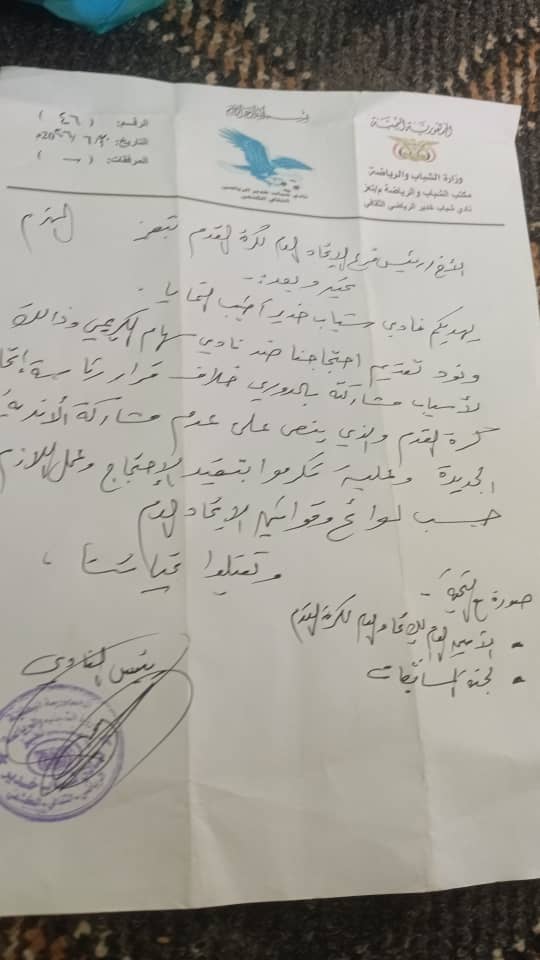 الجمهورية اليمنية
وزارة الشباب والرياضة
مكتب الشباب والرياضة م/تعز
نادي شباب خدير الرياضي الثقافي
بسم الله الرحمن الرحيم
الرقم: ( ٤٦ )
التاريخ: ٢٠/٦/
المرفقات: ( ـ )
الأخ/ رئيس فرع الإتحاد العام لكرة القدم بتعز المحترم
تحية وبعد :-
يهديكم نادي شباب خدير أطيب التحايا .
ونود تقديم احتجاجنا ضد نادي سهام الكريمي وذالك
لأسباب مشاركته بالدوري خلاف قرار رئاسة إتحاد
كرة القدم والذي ينص على عدم مشاركة الأندية
الجديدة وعليه تكرموا بتنفيذ الإحتجاج وعمل اللازم
حسب لوائح وقوانين الإتحاد العام
وتقبلوا تحياتنا ،
صورة مع التحية -
• الأمين العام للإتحاد العام لكرة القدم
• لجنة المسابقات
رئيس النادي